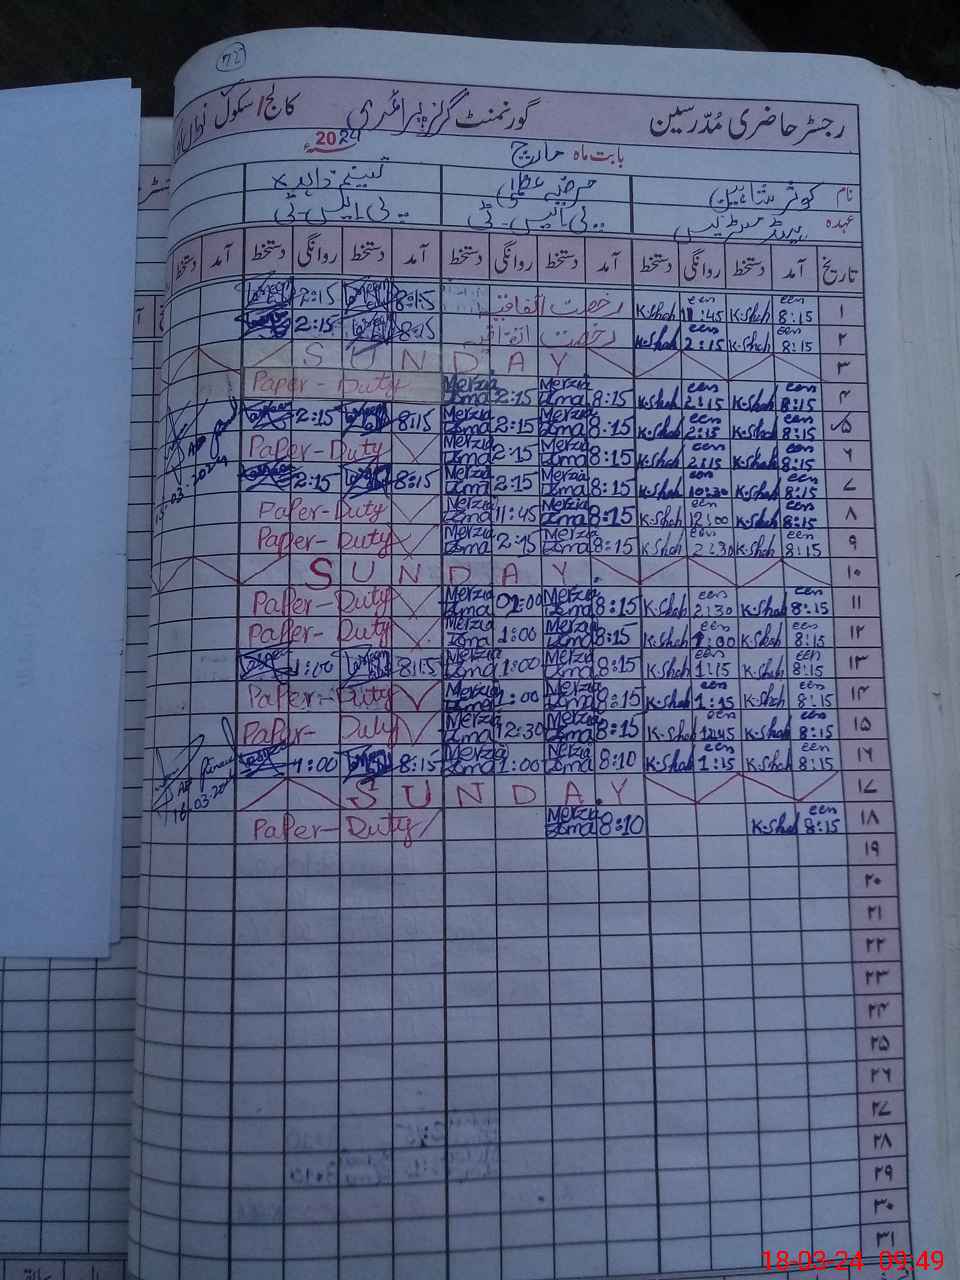 72
رجسٹر حاضری مُدرسین گورنمنٹ گرلز پرائمری کالج/سکول
بابت ماہ مارچ 2024
نام کوثر شاہین مرضیہ عظمیٰ
عہدہ ہیڈ مسٹریس پی ایس ٹی پی ایس ٹی
تاریخ آمد دستخط روانگی دستخط آمد دستخط روانگی دستخط آمد دستخط روانگی دستخط آمد دستخط
۱ 8:15 K.Shah 11:45 K.Shah رخصت اتفاقیہ 8:15 2:15
۲ 8:15 K.Shah 2:15 K.Shah رخصت اتفاقیہ 8:15 2:15
۳ SUNDAY
۴ 8:15 K.Shah 2:15 K.Shah 8:15 Merzia Uzma 2:15 Merzia Uzma Paper-Duty
۵ 8:15 K.Shah 2:15 K.Shah 8:15 Merzia Uzma 2:15 Merzia Uzma 8:15 2:15
۶ 8:15 K.Shah 2:15 K.Shah 8:15 Merzia Uzma 2:15 Merzia Uzma Paper-Duty
۷ 8:15 K.Shah 10:30 K.Shah 8:15 Merzia Uzma 2:15 Merzia Uzma 8:15 2:15
۸ 8:15 K.Shah 12:00 K.Shah 8:15 Merzia Uzma 11:45 Merzia Uzma Paper-Duty
۹ 8:15 K.Shah 2:30 K.Shah 8:15 Merzia Uzma 2:15 Merzia Uzma Paper-Duty
۱۰ SUNDAY
۱۱ 8:15 K.Shah 2:30 K.Shah 8:15 Merzia Uzma 01:00 Merzia Uzma Paper-Duty
۱۲ 8:15 K.Shah 1:00 K.Shah 8:15 Merzia Uzma 1:00 Merzia Uzma Paper-Duty
۱۳ 8:15 K.Shah 1:15 K.Shah 8:15 Merzia Uzma 1:00 Merzia Uzma 8:15 1:00
۱۴ 8:15 K.Shah 1:15 K.Shah 8:15 Merzia Uzma 1:00 Merzia Uzma Paper-Duty
۱۵ 8:15 K.Shah 12:45 K.Shah 8:15 Merzia Uzma 12:30 Merzia Uzma Paper-Duty
۱۶ 8:15 K.Shah 1:15 K.Shah 8:10 Merzia Uzma 1:00 Merzia Uzma 8:15 1:00
۱۷ SUNDAY
۱۸ 8:15 K.Shah 8:10 Merzia Uzma Paper-Duty
۱۹
۲۰
۲۱
۲۲
۲۳
۲۴
۲۵
۲۶
۲۷
۲۸
۲۹
۳۰
۳۱
18-03-24 09:49